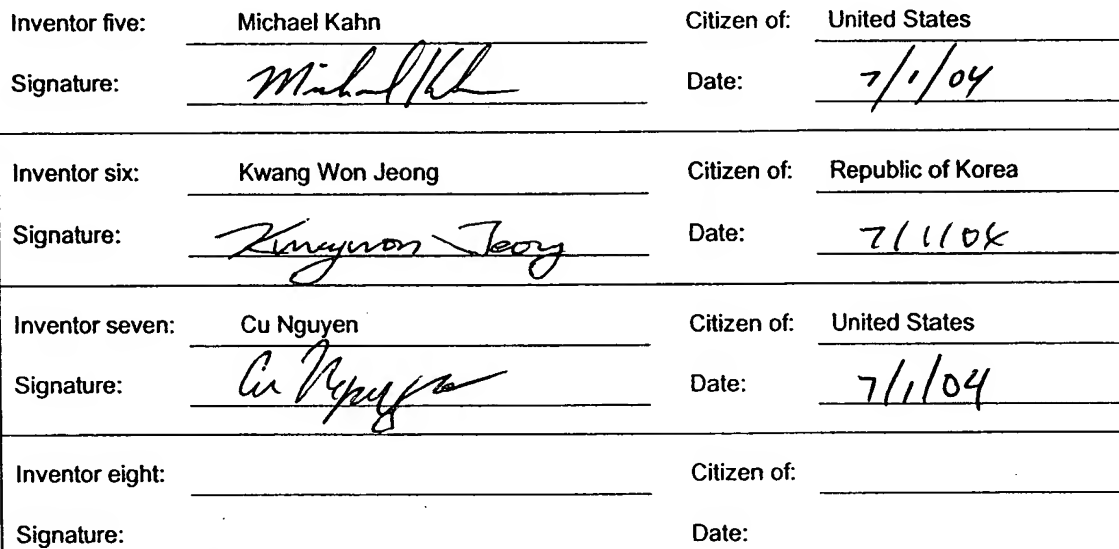 Inventor five: Michael Kahn Citizen of: United States
Signature: Michael Kahn Date: 7/1/04
Inventor six: Kwang Won Jeong Citizen of: Republic of Korea
Signature: Kwangwon Jeong Date: 7/1/04
Inventor seven: Cu Nguyen Citizen of: United States
Signature: Cu Nguyen Date: 7/1/04
Inventor eight: Citizen of:
Signature: Date: